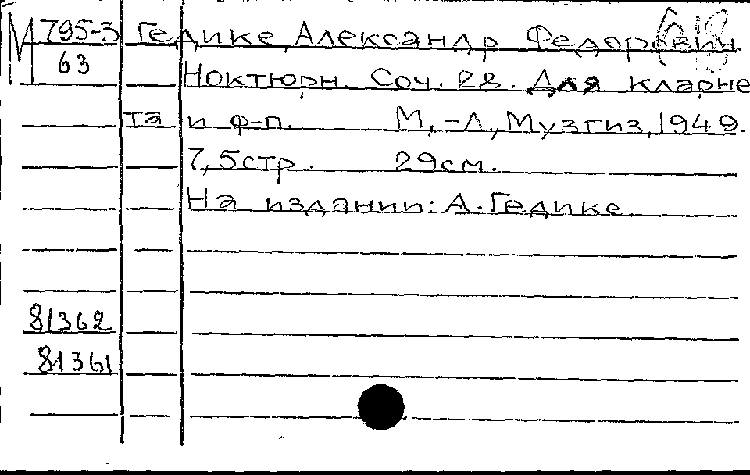 М 795-3 Гедике, Александр Федорович.
63 Ноктюрн. Соч. 28. Для кларне
та и ф-п. М,-Л, Музгиз, 1949.
7, 5стр. 29см.
На издании: А. Гедике.
81362
81361